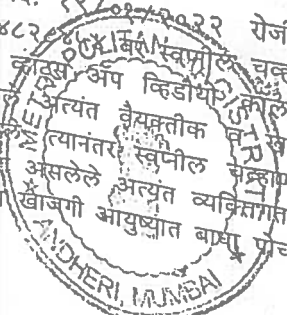 रोजी
स्वप्नील चव्ह
व्हाट्स अप व्हिडीयो कॉल
अत्यंत वैयक्तीक व
त्यानंतर स्वप्नील चव्हाण
असलेले अत्यंत व्यक्तिगत
खाजगी आयुष्यात बाधा पोच
METROPOLITAN
ANDHERI, MUMBAI